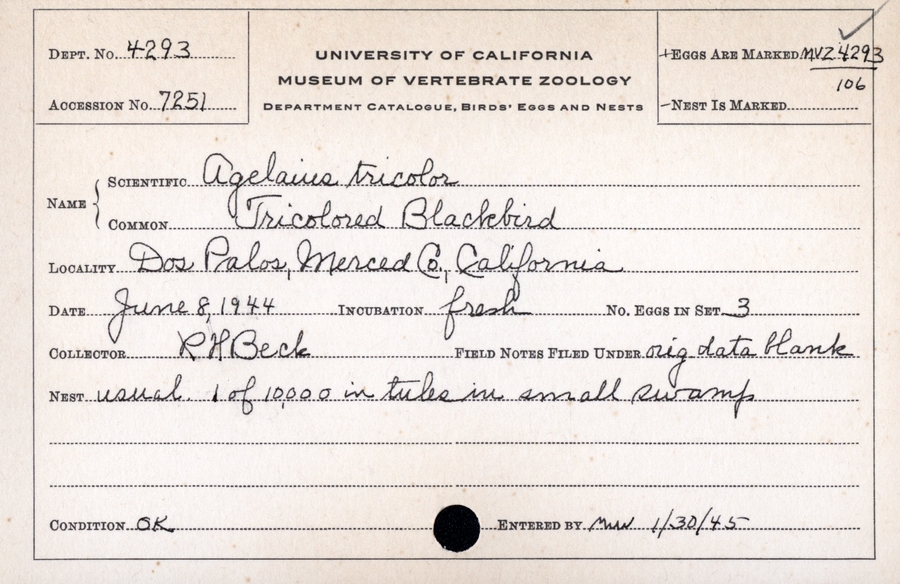 DEPT. No. 4293
ACCESSION No. 7251
UNIVERSITY OF CALIFORNIA
MUSEUM OF VERTEBRATE ZOOLOGY
DEPARTMENT CATALOGUE, BIRDS' EGGS AND NESTS
+EGGS ARE MARKED MVZ 4293
106
-NEST IS MARKED
NAME { SCIENTIFIC Agelaius tricolor
COMMON Tricolored Blackbird
LOCALITY Dos Palos, Merced Co., California
DATE June 8, 1944 INCUBATION fresh No. EGGS IN SET 3
COLLECTOR R H Beck FIELD NOTES FILED UNDER orig data blank
NEST usual. 1 of 10,000 in tules in small swamp
CONDITION OK ENTERED BY 1/30/45